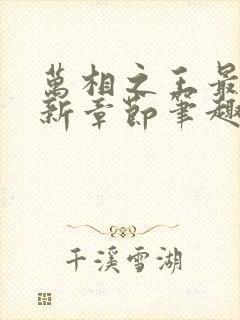 萬相之王最
新章節筆趣
千溪雪湖